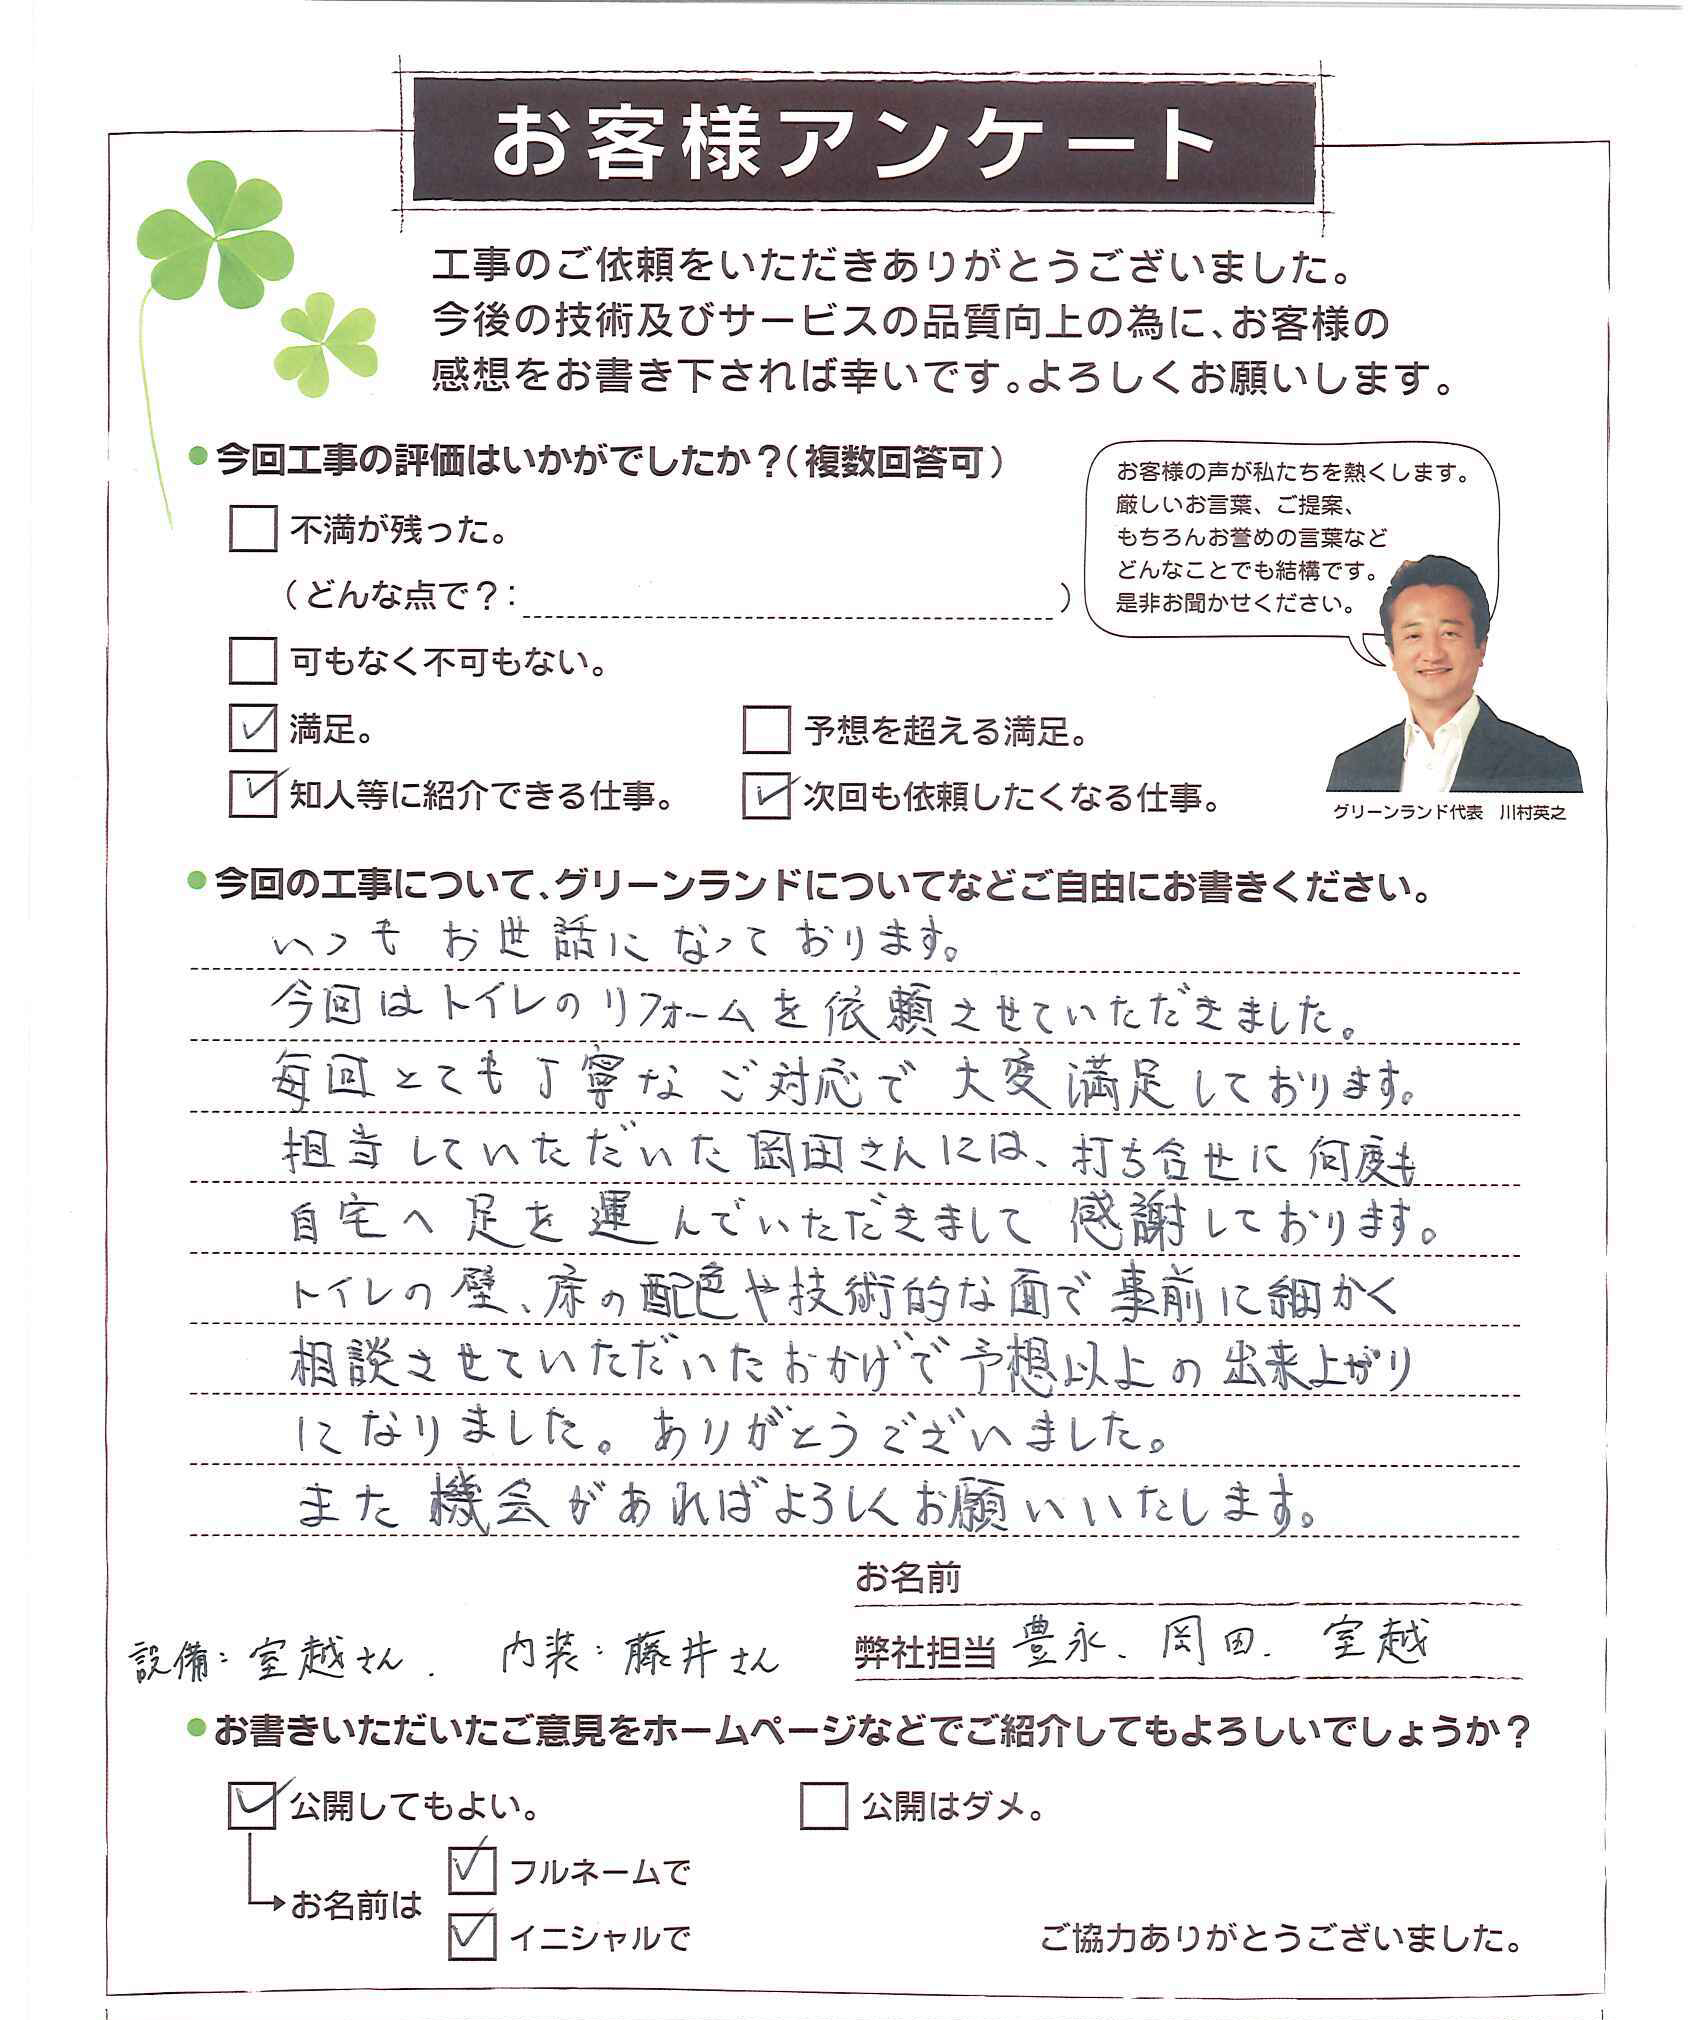 お客様アンケート
工事のご依頼をいただきありがとうございました。
今後の技術及びサービスの品質向上の為に、お客様の
感想をお書き下されば幸いです。よろしくお願いします。
今回工事の評価はいかがでしたか？（複数回答可）
不満が残った。
（どんな点で？： ）
可もなく不可もない。
満足。
予想を超える満足。
知人等に紹介できる仕事。
次回も依頼したくなる仕事。
お客様の声が私たちを熱くします。
厳しいお言葉、ご提案、
もちろんお誉めの言葉など
どんなことでも結構です。
是非お聞かせください。
グリーンランド代表　川村英之
今回の工事について、グリーンランドについてなどご自由にお書きください。
いつも お世話に なって おります。
今回はトイレのリフォームを依頼させていただきました。
毎回とても丁寧な ご対応で 大変満足しております。
担当していただいた岡田さんには、打ち合せに何度も
自宅へ足を運んでいただきまして 感謝しております。
トイレの壁、床の配色や技術的な面で事前に細かく
相談させていただいたおかげで予想以上の出来上がり
になりました。ありがとうございました。
また機会があればよろしくお願いいたします。
お名前
設備：室越さん． 内装：藤井さん
弊社担当 豊永、岡田． 室越
お書きいただいたご意見をホームページなどでご紹介してもよろしいでしょうか？
公開してもよい。
公開はダメ。
お名前は
フルネームで
イニシャルで
ご協力ありがとうございました。